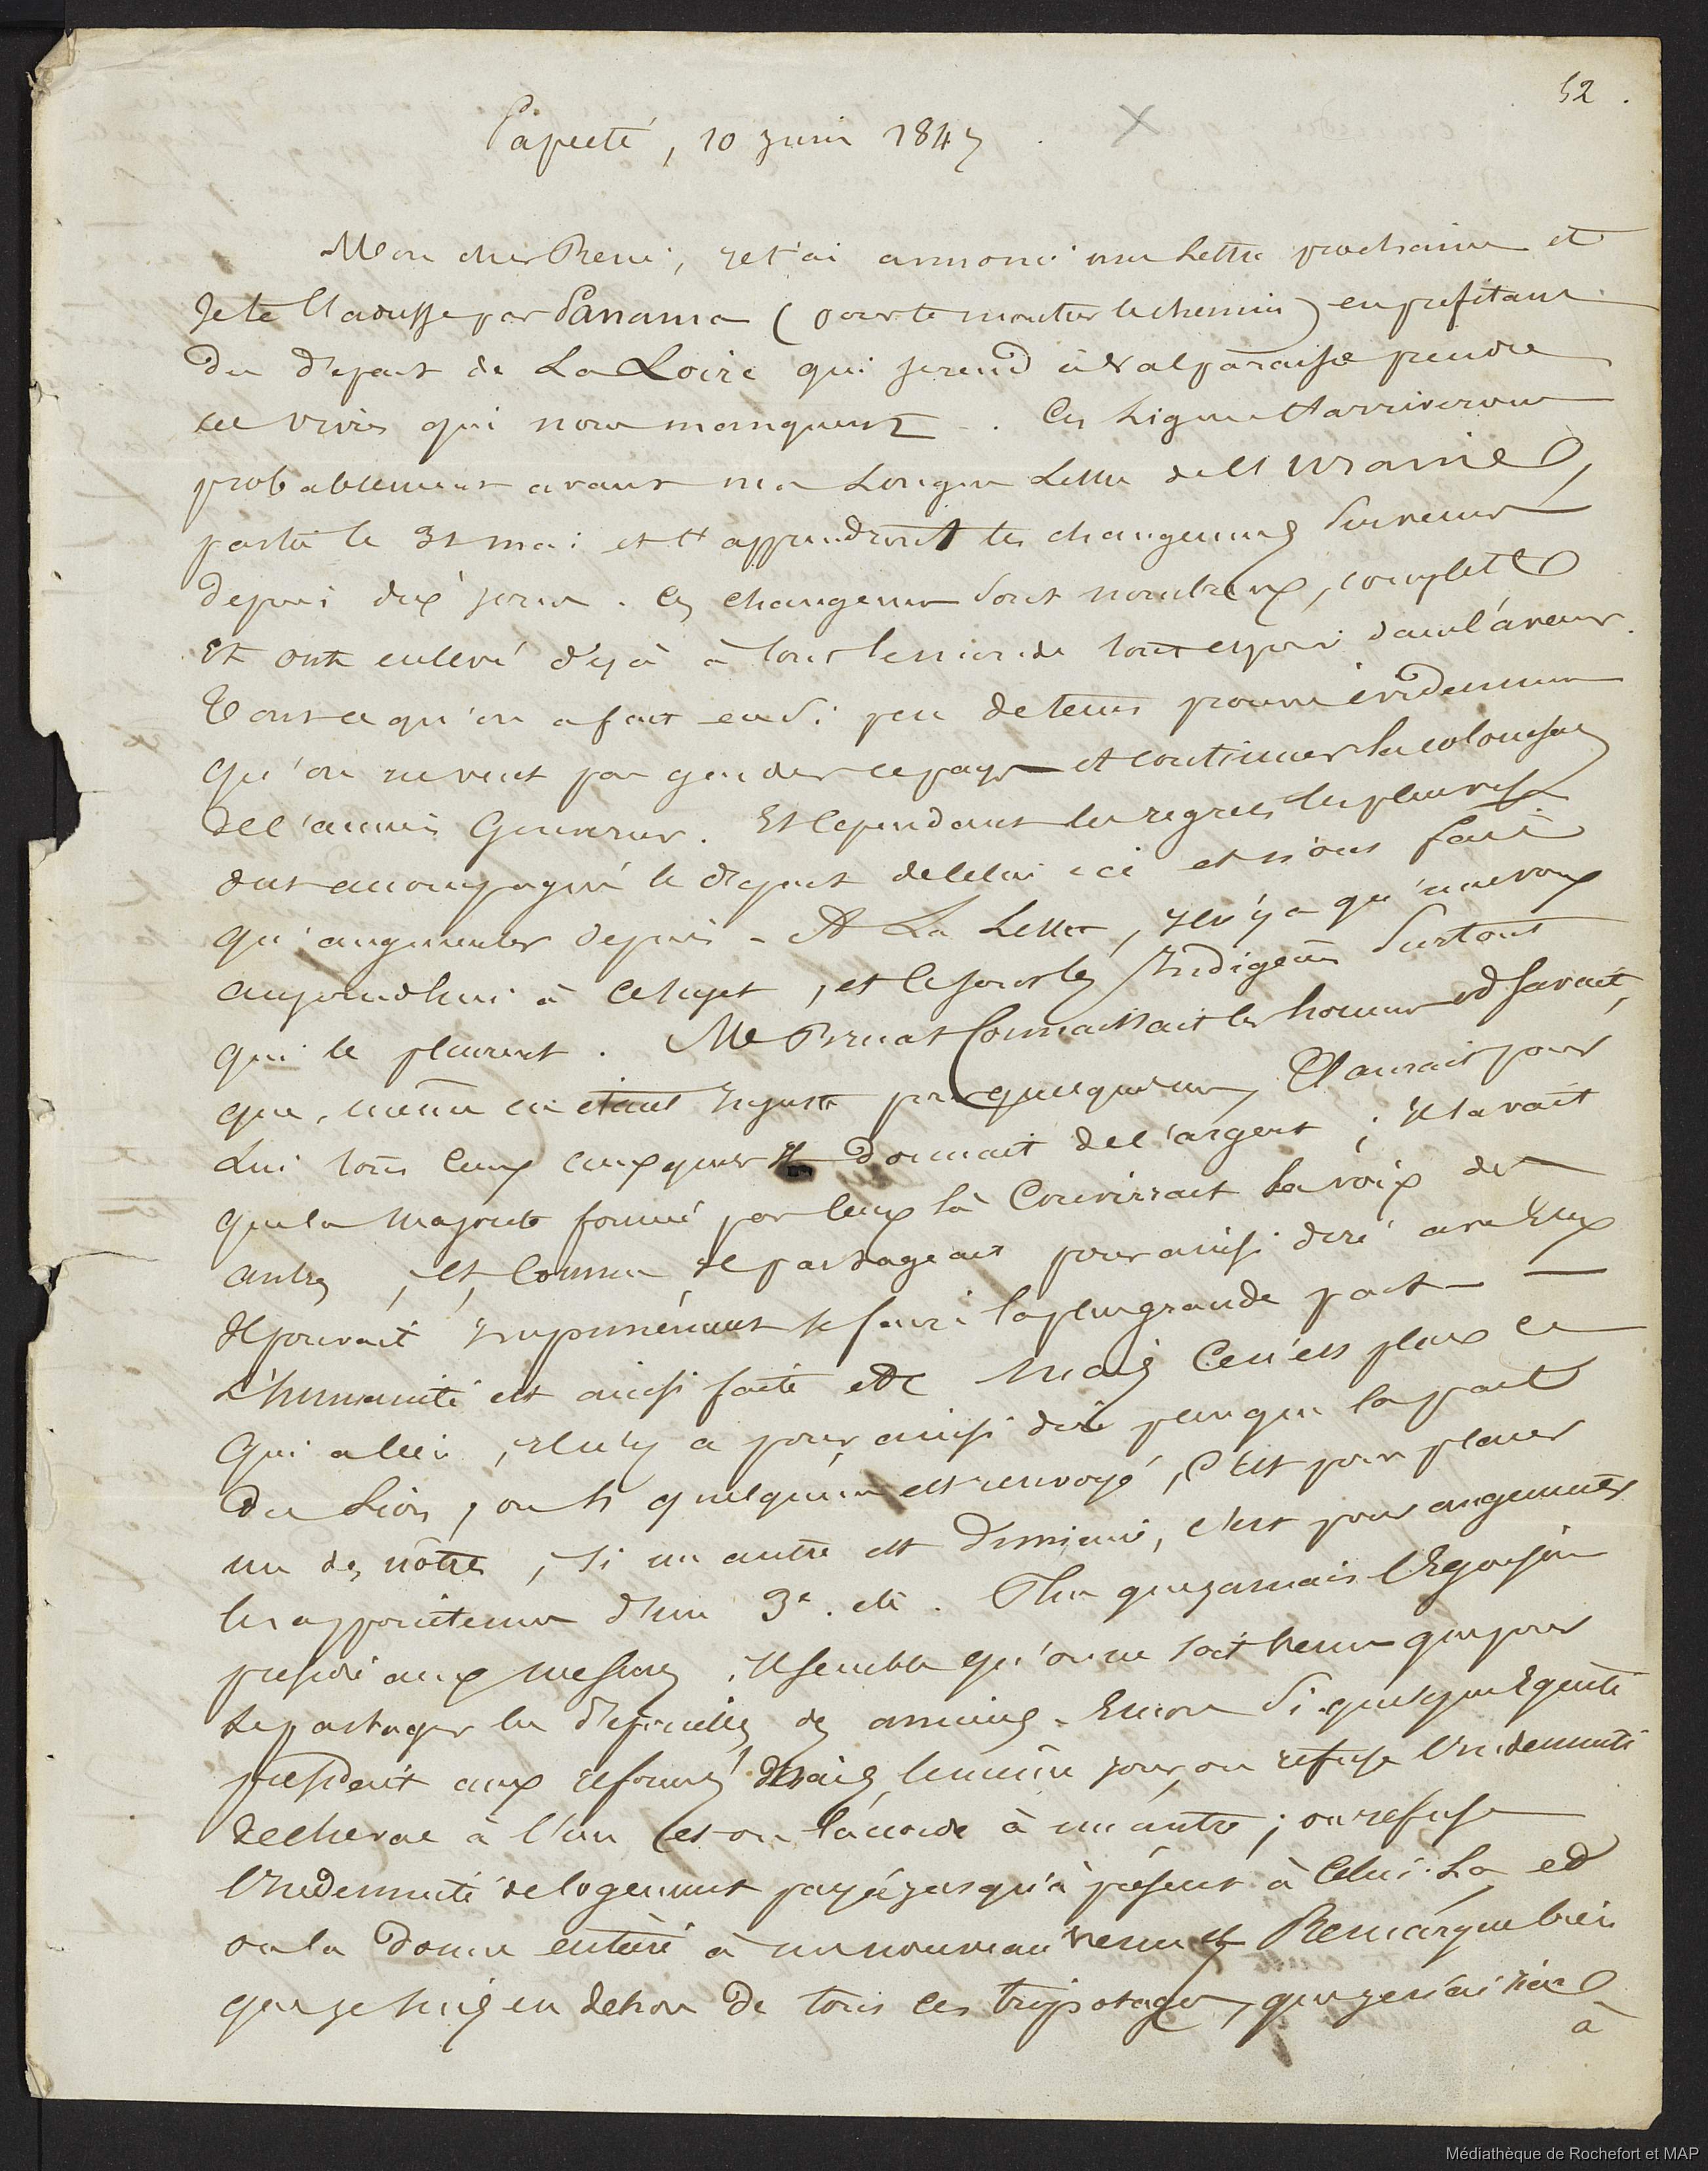 52.
Papeete, 10 juin 1847
Mon cher René, je t'ai annoncé une lettre prochaine et
je te l'adresse par Panama (pour te montrer le chemin) en profitant
du départ de La Loire qui se rend à Valparaiso prendre
les vivres qui nous manquent. Ces lignes t'arriveront
probablement avant ma longue lettre de l'Uranie,
partie le 31 mai et t'apprendront les changements survenus
depuis dix jours. Ces changemens sont nombreux, complets
et ont enlevé déjà à tout le monde tout espoir dans l'avenir.
Tout ce qu'on a fait en si peu de tems prouve évidemment
qu'on ne veut pas garder ce pays et continuer la colonisation
de l'ancien Gouverneur. Et cependant les regrets les plus vifs
ont accompagné le départ de celui ici et n'ont fait
qu'augmenter depuis. A la lettre, il n'y a qu'une voix
aujourd'hui à ce sujet, et ce sont les Indigènes surtout
qui le pleurent. Mr Bruat connaissait les hommes et savait,
que, même en étant injuste pour quelques uns, il aurait pour
lui tous ceux auxquels il donnait de l'argent; il savait
que la majorité formée par ceux là couvrirait la voix des
autres, et, comme il partageait pour ainsi dire avec eux
il pouvait impunément se faire la plus grande part
L'humanité est ainsi faite etc Mais ce n'est plus ce
qui a lieu, il n'y a pour ainsi dire plus que la part
du Lion, ou si quelqu'un est renvoyé, c'est pour placer
un des nôtres, si un autre est diminué, c'est pour augmenter
les appointemens d'un 3e. etc. Plus que jamais l'Egoïsme
préside aux mesures. Il semble qu'on ne soit venu que pour
se partager les dépouilles des anciens. Encore si quelque Equité
présidait aux réformes! Mais le même jour, on refuse l'indemnité
de cheval à l'un et on l'accorde à un autre; on refuse
l'indemnité de logement payée jusqu'à présent à celui-là et
on la donne entière à un nouveau venu etc Remarque bien
que je suis en dehors de tous ces tripotages, que je n'ai rien
à
Médiathèque de Rochefort et MAP